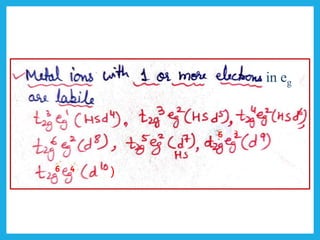 ✓Metal ions with 1 or more electrons in eg
are labile
t2g³ eg¹ (HS d⁴), t2g³ eg² (HS d⁵), t2g⁴ eg² (HS d⁶),
t2g⁶ eg² (d⁸), t2g⁵ eg² (d⁷), t2g⁶ eg³ (d⁹)
HS
t2g⁶ eg⁴ (d¹⁰)